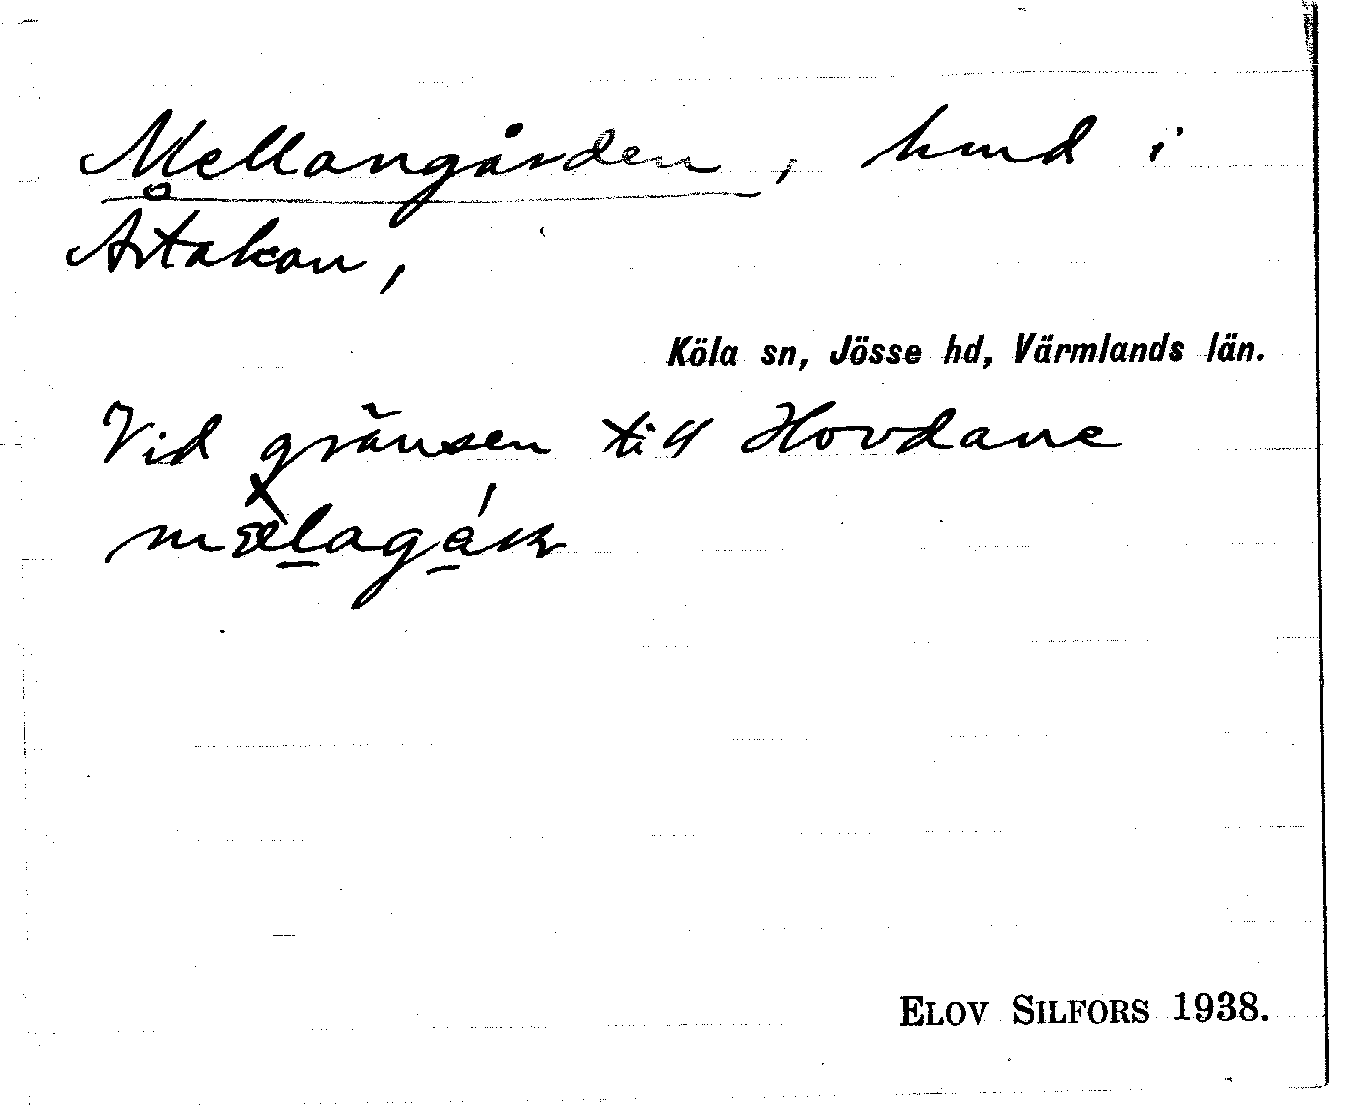 Mellangården, hmd i
Årtakan,
Köla sn, Jösse hd, Värmlands län.
Vid gränsen till Hovdane
ELOV SILFORS 1938.